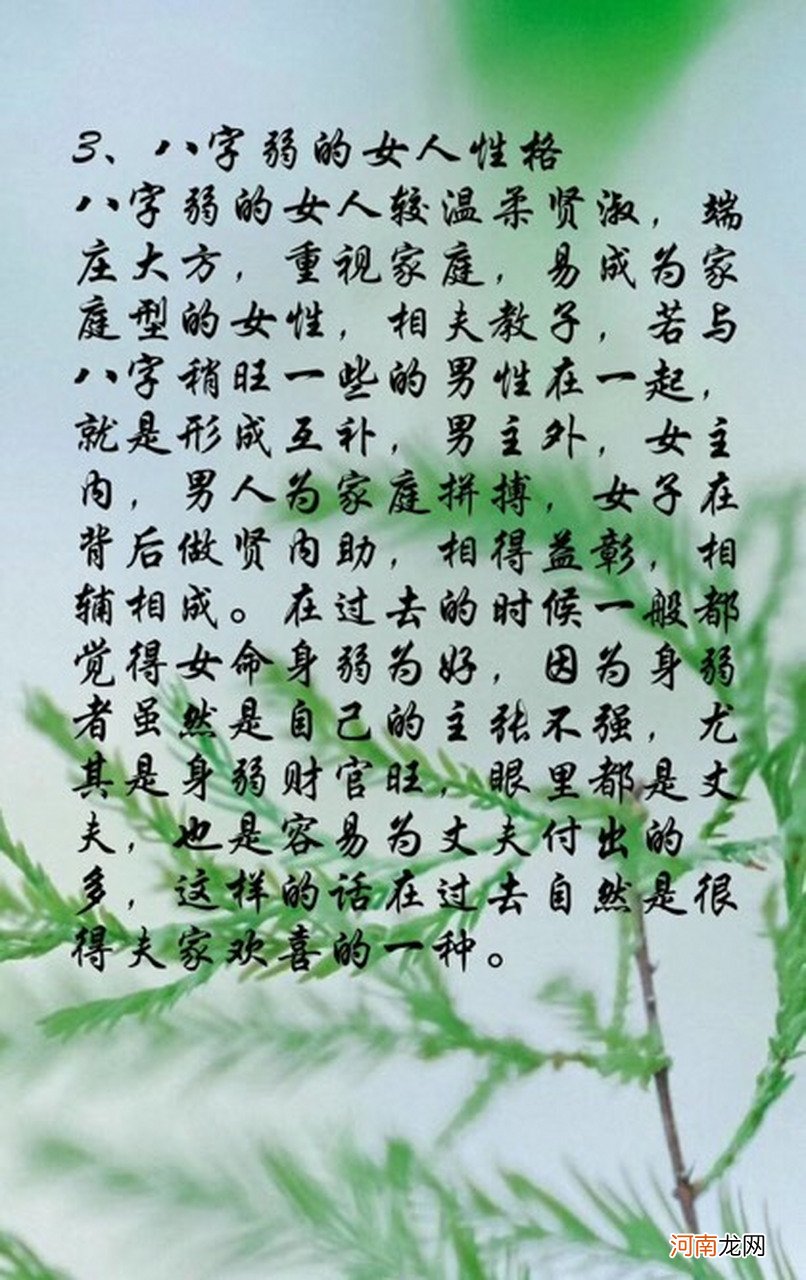 3、八字弱的女人性格
八字弱的女人较温柔贤淑，端
庄大方，重视家庭，易成为家
庭型的女性，相夫教子，若与
八字稍旺一些的男性在一起，
就是形成互补，男主外，女主
内，男人为家庭拼搏，女子在
背后做贤内助，相得益彰，相
辅相成。在过去的时候一般都
觉得女命身弱为好，因为身弱
者虽然是自己的主张不强，尤
其是身弱财官旺，眼里都是丈
夫，也是容易为丈夫付出的
多，这样的话在过去自然是很
得夫家欢喜的一种。
河南龙网